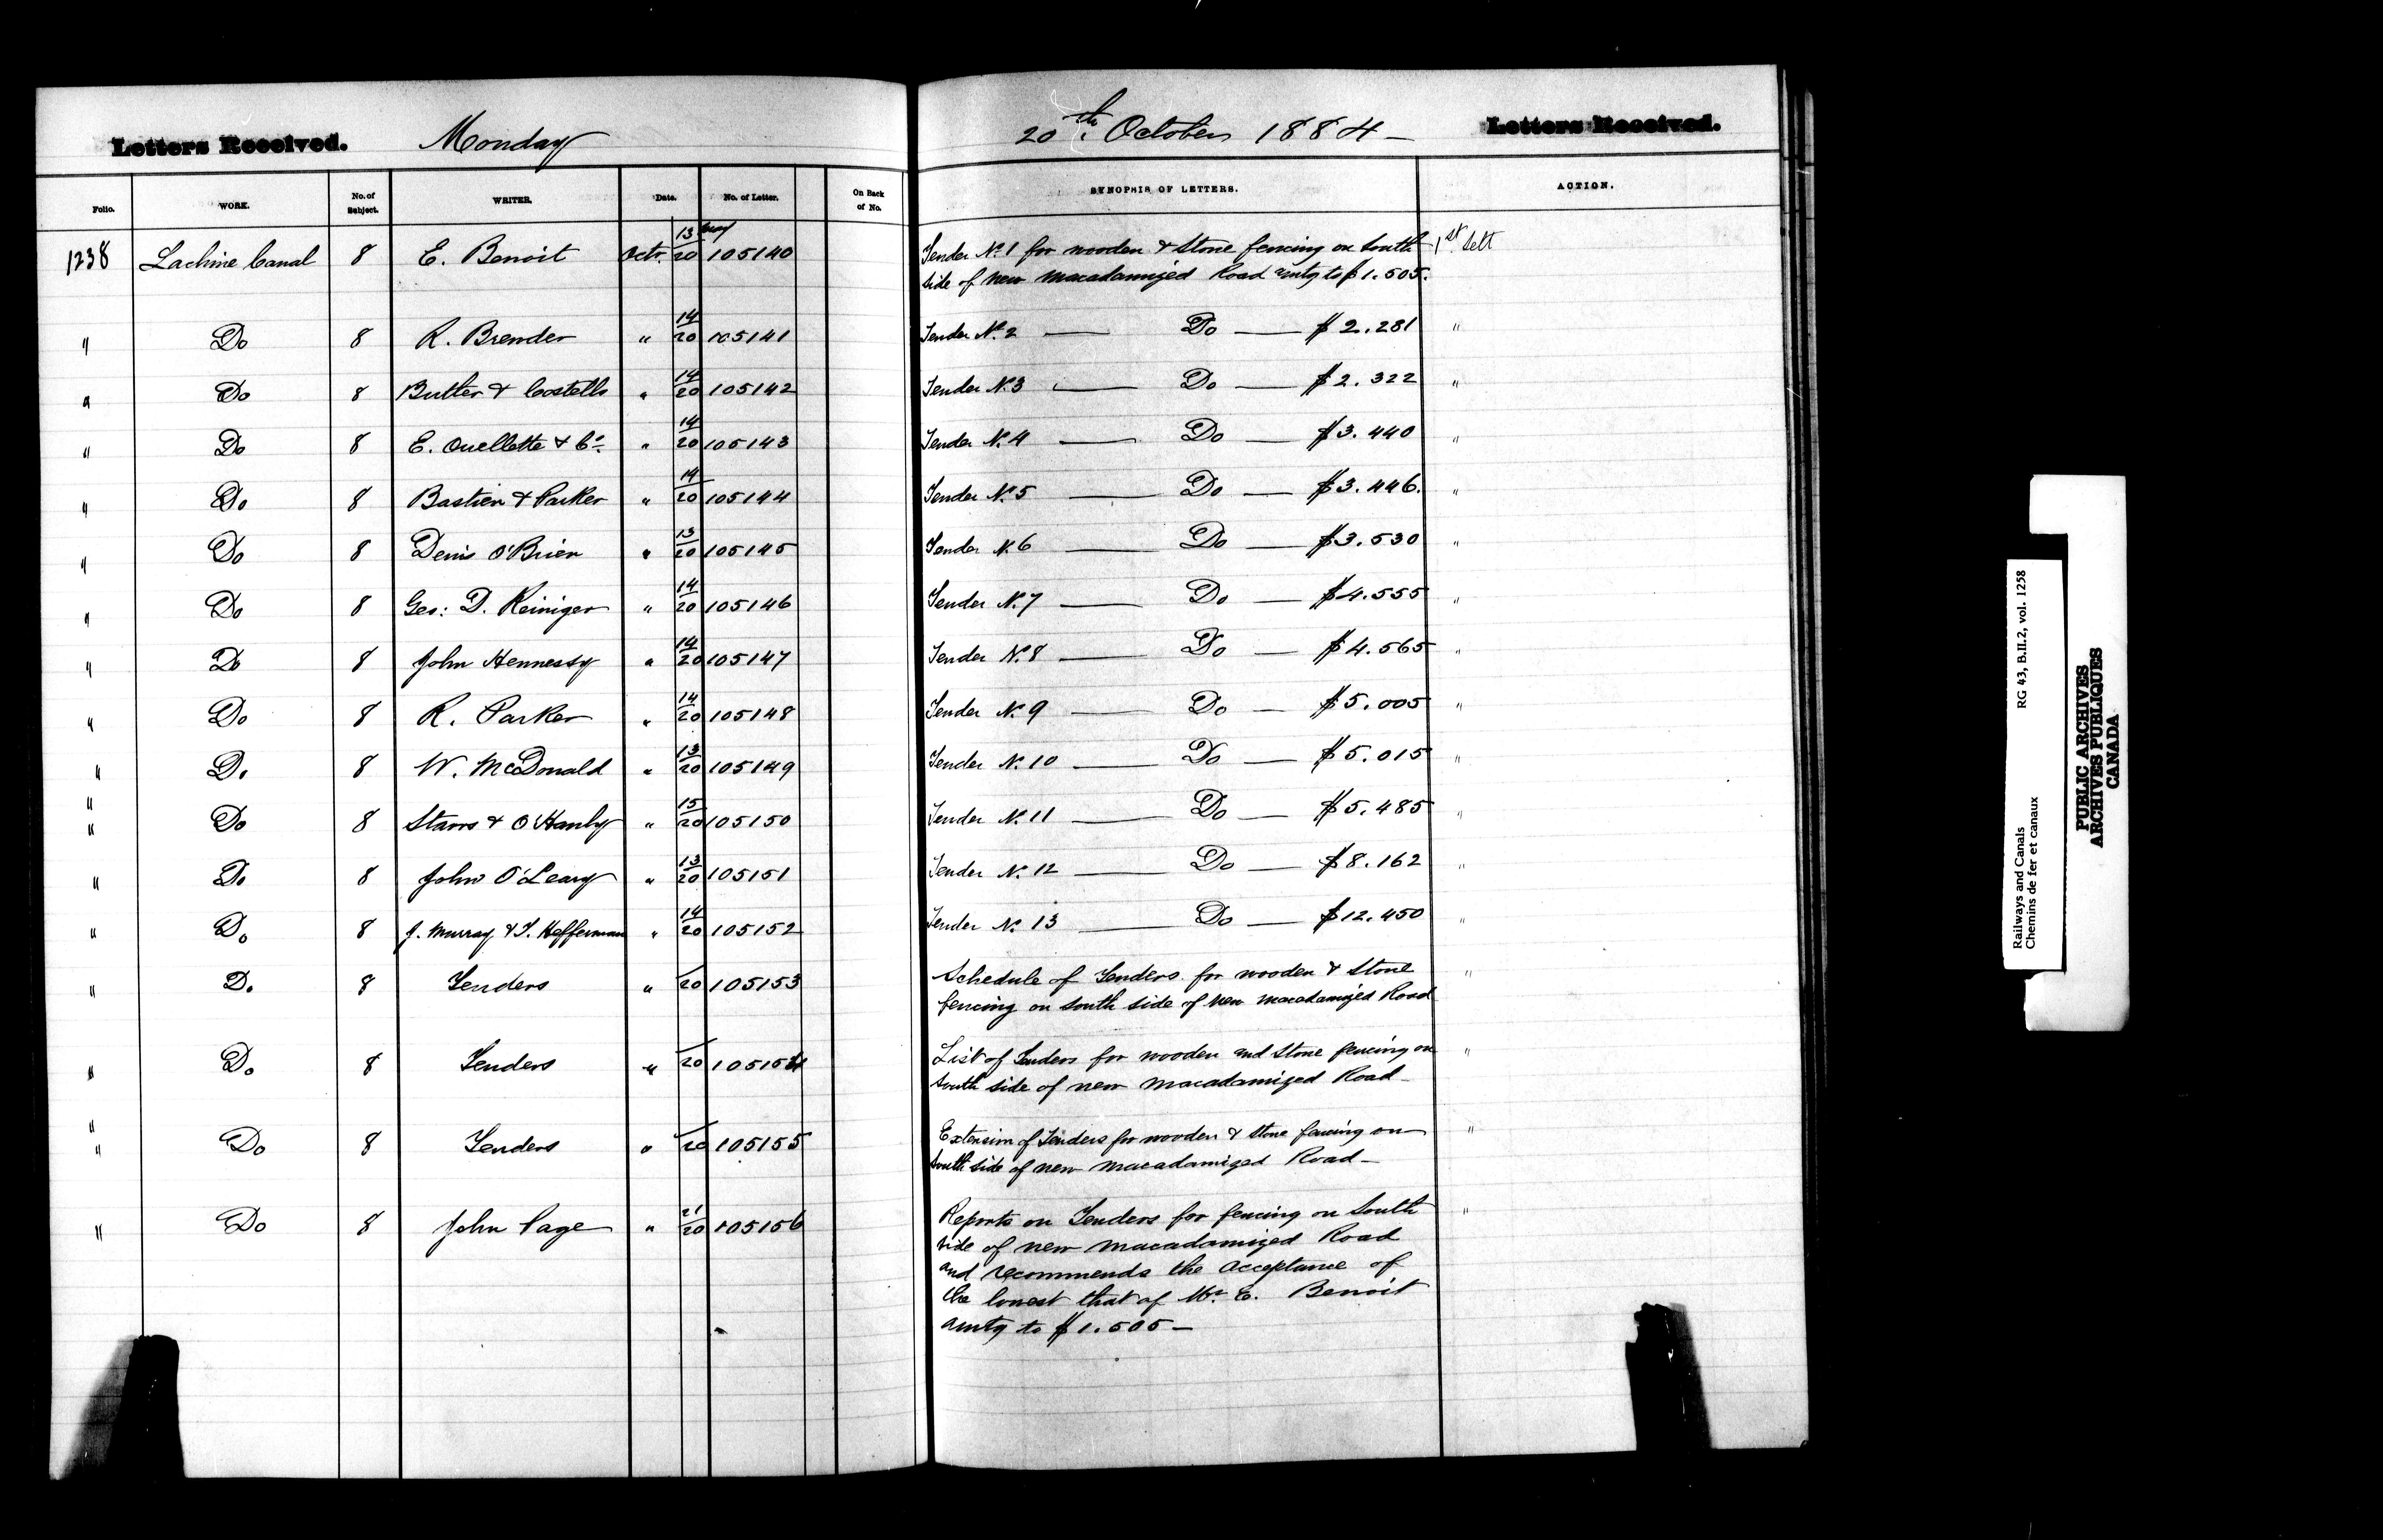 Letters Received. Monday 20th. October 1884 — Letters Received.
Folio. WORK. No. of Subject. WRITER. Date. No. of Letter. On Back of No. SYNOPSIS OF LETTERS. ACTION.
1238 Lachine Canal 8 E. Benoit Octr. 13/20 105140 Tender No. 1 for wooden & Stone fencing on South 1st Sett
side of new macadamized Road amtg to $1.505.
" Do 8 R. Brender " 14/20 105141 Tender No. 2 — Do — $2.281 "
" Do 8 Butler & Costello " 14/20 105142 Tender No. 3 — Do — $2.322 "
" Do 8 E. Ouellette & Co. " 14/20 105143 Tender No. 4 — Do — $3.440 "
" Do 8 Bastien & Parker " 14/20 105144 Tender No. 5 — Do — $3.446. "
" Do 8 Denis O'Brien " 13/20 105145 Tender No. 6 — Do — $3.530 "
" Do 8 Geo: D. Reiniger " 14/20 105146 Tender No. 7 — Do — $4.555 "
" Do 8 John Hennessy " 14/20 105147 Tender No. 8 — Do — $4.565 "
" Do 8 R. Parker " 14/20 105148 Tender No. 9 — Do — $5.005 "
" Do 8 W. McDonald " 13/20 105149 Tender No. 10 — Do — $5.015 "
" " Do 8 Starrs & O'Hanly " 15/20 105150 Tender No. 11 — Do — $5.485 "
" Do 8 John O'Leary " 13/20 105151 Tender No. 12 — Do — $8.162 "
" Do 8 J. Murray & T. Heffernan " 14/20 105152 Tender No. 13 — Do — $12.450 "
" Do 8 Tenders " /20 105153 Schedule of Tenders for wooden & Stone "
fencing on South side of new macadamized Road
" Do 8 Tenders " /20 105154 List of Tenders for wooden and Stone fencing on "
South side of new macadamized Road —
" " Do 8 Tenders " /20 105155 Extension of Tenders for wooden & Stone fencing on "
South side of new macadamized Road —
" Do 8 John Page " 21/20 105156 Reports on Tenders for fencing on South "
side of new macadamized Road
and recommends the acceptance of
the lowest that of Mr. E. Benoit
amtg to $1.505 —
Railways and Canals RG 43, B.II.2, vol. 1258
Chemins de fer et canaux
PUBLIC ARCHIVES
ARCHIVES PUBLIQUES
CANADA